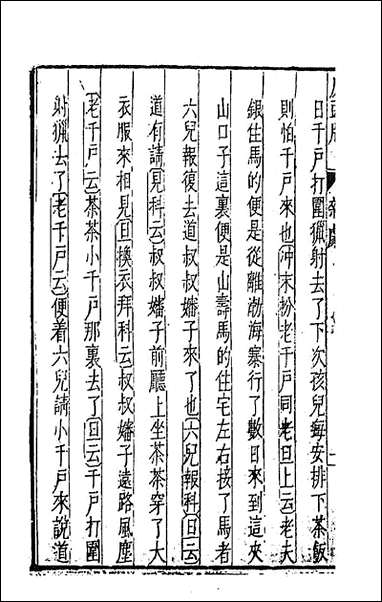 日千戶打圍獵射去了下次孩兒每安排下茶飯
則怕千戶來也冲末扮老千戶同老旦上云老夫
銀住馬的便是從離渤海寨行了數日來到這夾
山口子這裏便是山壽馬的住宅左右接了馬者
六兒報復去道叔叔嬸子來了也六兒報科旦云
道有請見科云叔叔嬸子前廳上坐茶茶穿了大
衣服來相見旦換衣拜科云叔叔嬸子遠路風塵
老千戶云茶茶小千戶那裏去了旦云千戶打圍
射獵去了老千戶云便着六兒請小千戶來說道